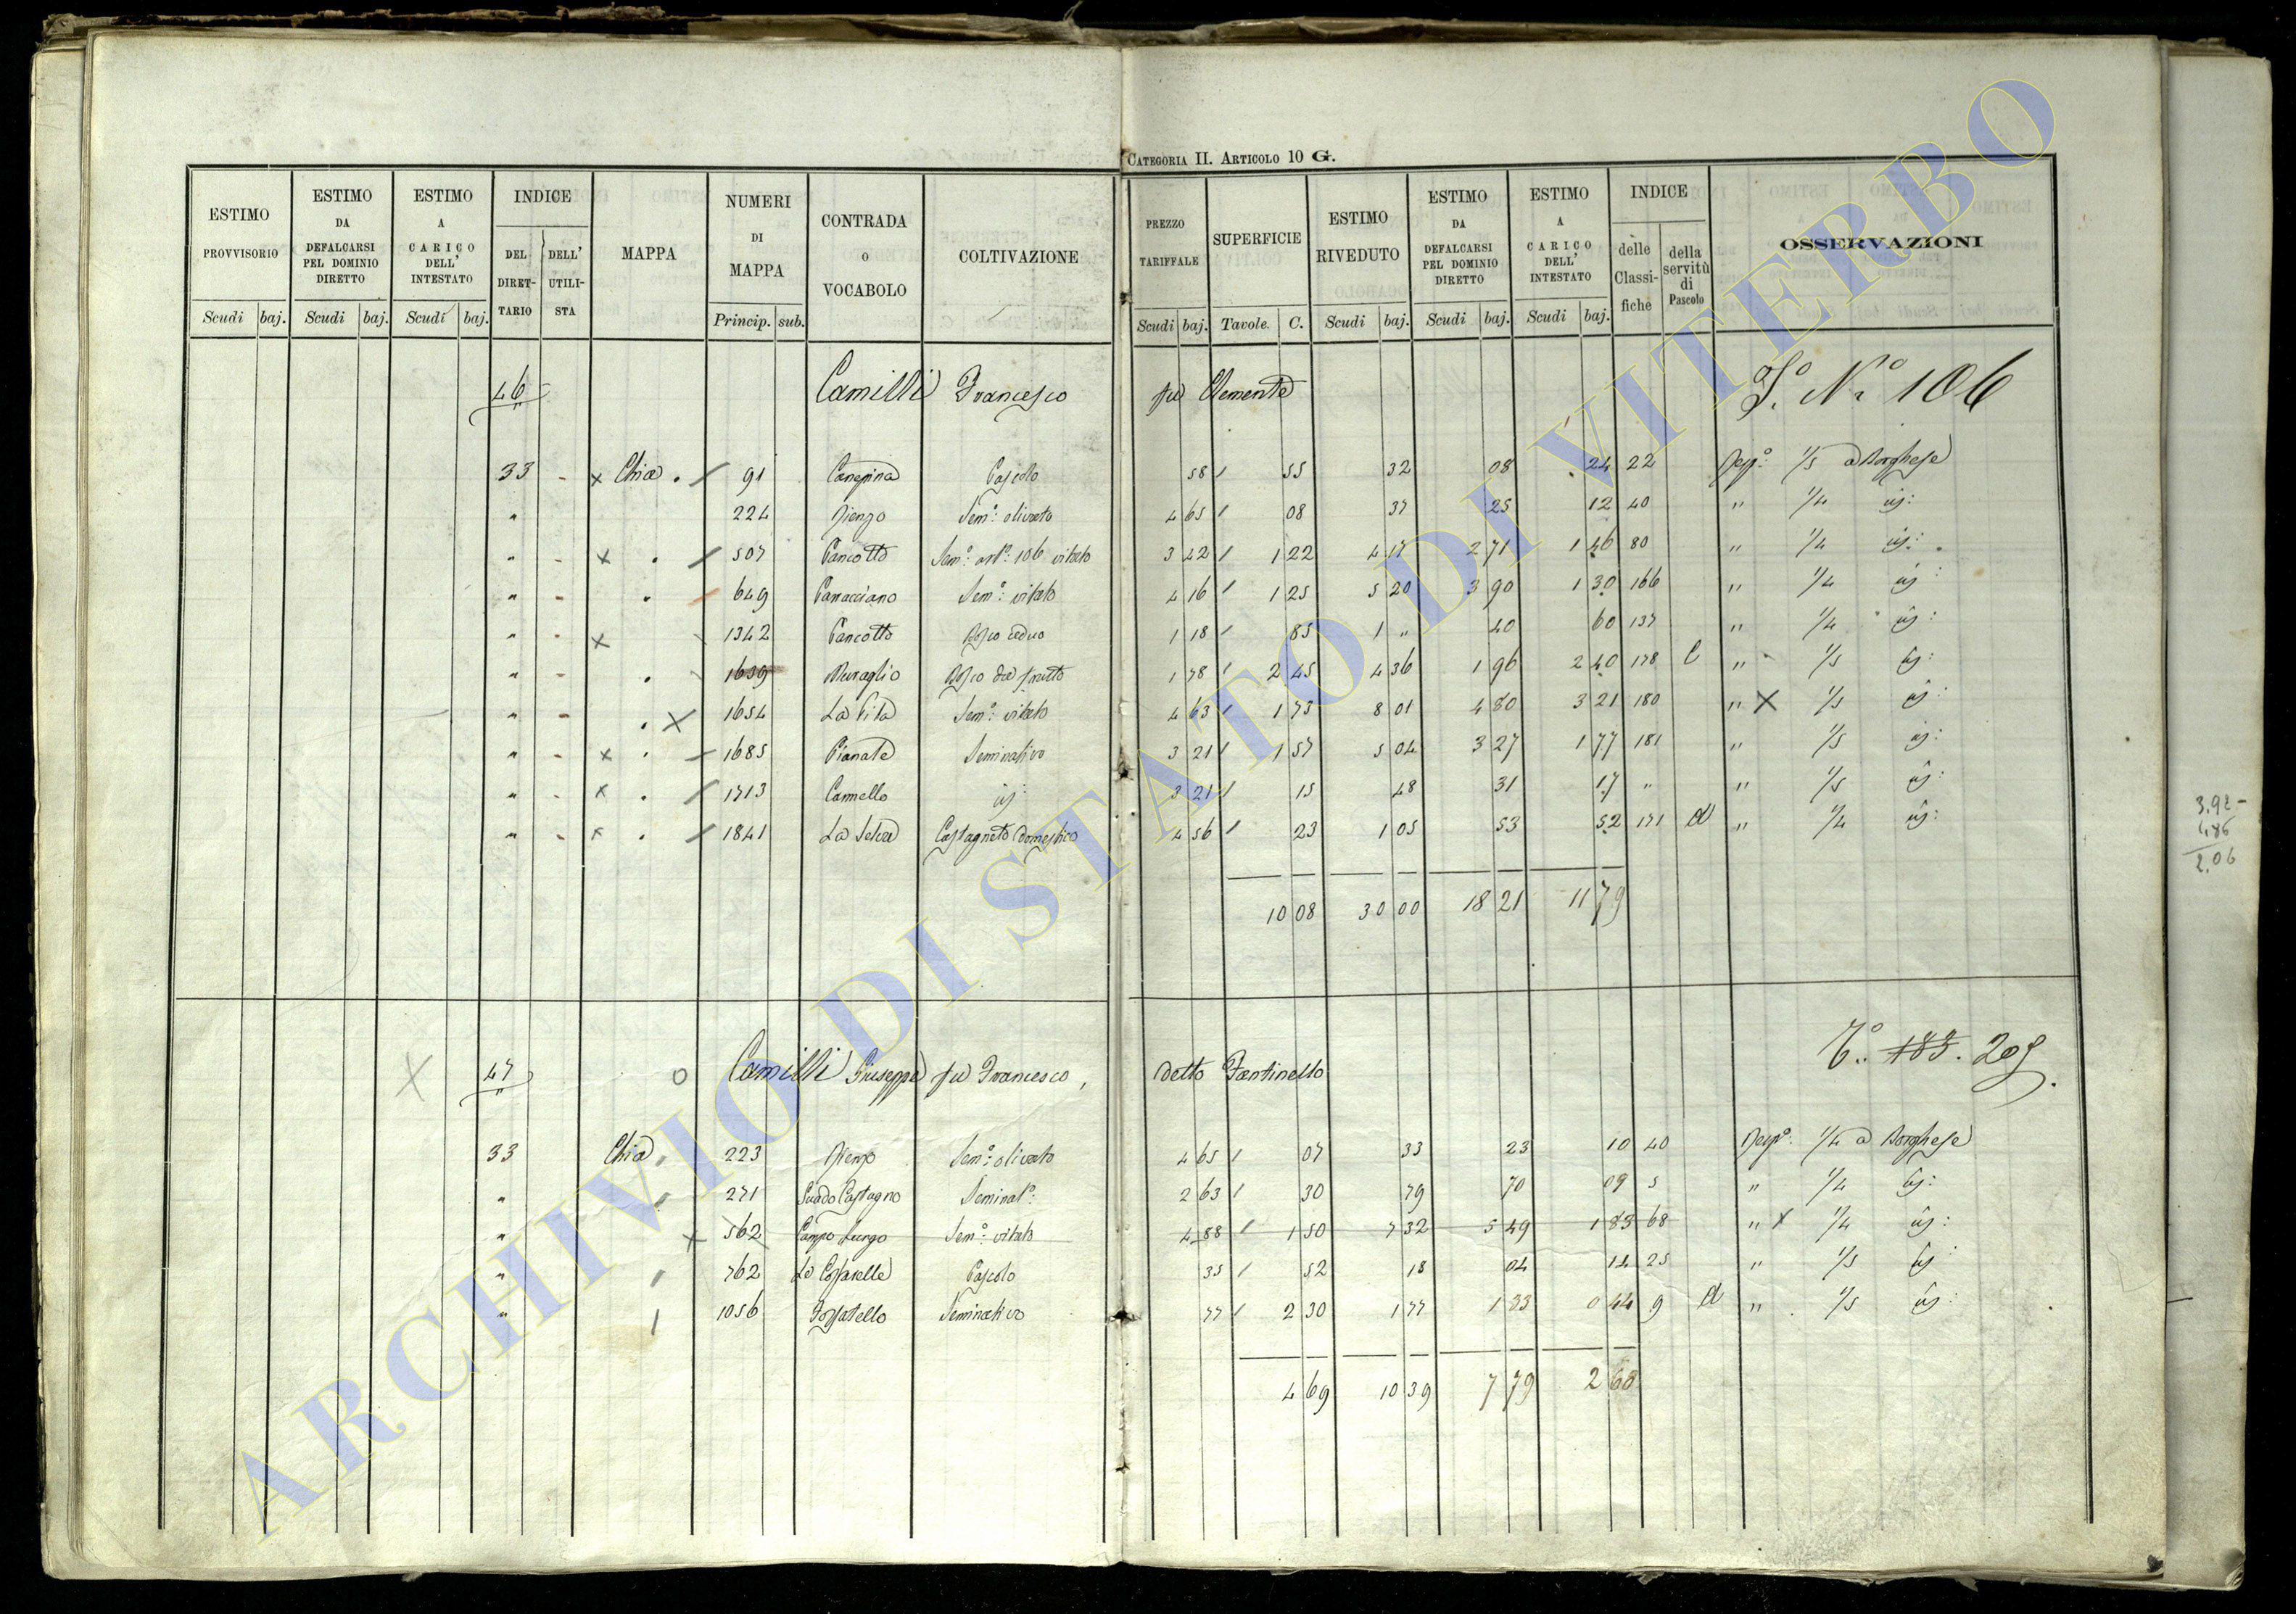 CATEGORIA II. ARTICOLO 10 G.
ESTIMO PROVVISORIO | ESTIMO DA DEFALCARSI PEL DOMINIO DIRETTO | ESTIMO A CARICO DELL' INTESTATO | INDICE | MAPPA | NUMERI DI MAPPA | CONTRADA O VOCABOLO | COLTIVAZIONE | PREZZO TARIFFALE | SUPERFICIE | ESTIMO RIVEDUTO | ESTIMO DA DEFALCARSI PEL DOMINIO DIRETTO | ESTIMO A CARICO DELL' INTESTATO | INDICE | OSSERVAZIONI
DEL DIRETTARIO | DELL' UTILISTA | delle Classifiche | della servitù di Pascolo
Scudi | baj. | Scudi | baj. | Scudi | baj. | Princip. | sub. | Scudi | baj. | Tavole. | C. | Scudi | baj. | Scudi | baj. | Scudi | baj.
46 Camilli Francesco fu Clemente N.º 106
33 - x Chia . / 91 Canepina Pascolo 58 / 55 32 08 24 22 Risp.º 1/5 a Borghese
" 224 Sem.º olivato 4 65 / 08 37 25 12 40 " 1/4 id:
" - x . / 507 Pancotto Sem.º art.º 106 vitato 3 42 / 1 22 4 17 2 71 1 46 80 " 1/4 id:
" - . / 649 Sem.º vitato 4 16 / 1 25 5 20 3 90 1 30 166 " 1/4 id:
" - x \ 1342 Pancotto Bosco ceduo 1 18 / 85 1 " 40 60 137 " 1/4 id:
" - . \ 1639 Muraglio Bosco da frutto 1 78 / 2 45 4 36 1 96 2 40 178 C " 1/5 id:
" - . X 1654 La Pila Sem.º vitato 4 63 / 1 73 8 01 4 80 3 21 180 " X 1/5 id:
" - x . / 1685 Pianale Seminativo 3 21 / 1 57 5 04 3 27 1 77 181 " 1/5 id:
" - x . / 1713 Cannello id: 3 21 / 15 48 31 17 " " 1/5 id:
" - x . / 1841 La Selva Castagneto domestico 4 56 / 23 1 05 53 52 171 " 1/4 id:
10 08 30 00 18 21 11 79
3.92-
1.86
2.06
X 47 O Camilli Giuseppe fu Francesco, detto Fantinello 183. 205
33 Chia 223 Sem.º olivato 4 65 / 07 33 23 10 40 Risp.º 1/4 a Borghese
" 271 Guado Castagno Seminat.º 2 63 / 30 79 70 09 5 " 1/4 id:
" x 562 Campo Lungo Sem.º vitato 4 88 / 1 50 7 32 5 49 1 83 68 " X 1/4 id:
" / 762 Pascolo 35 / 52 18 04 14 25 " 1/5 id:
" / 1056 Fossatello Seminativo 77 / 2 30 1 77 1 33 0 44 9 " 1/5 id:
4 69 10 39 7 79 2 60
ARCHIVIO DI STATO DI VITERBO